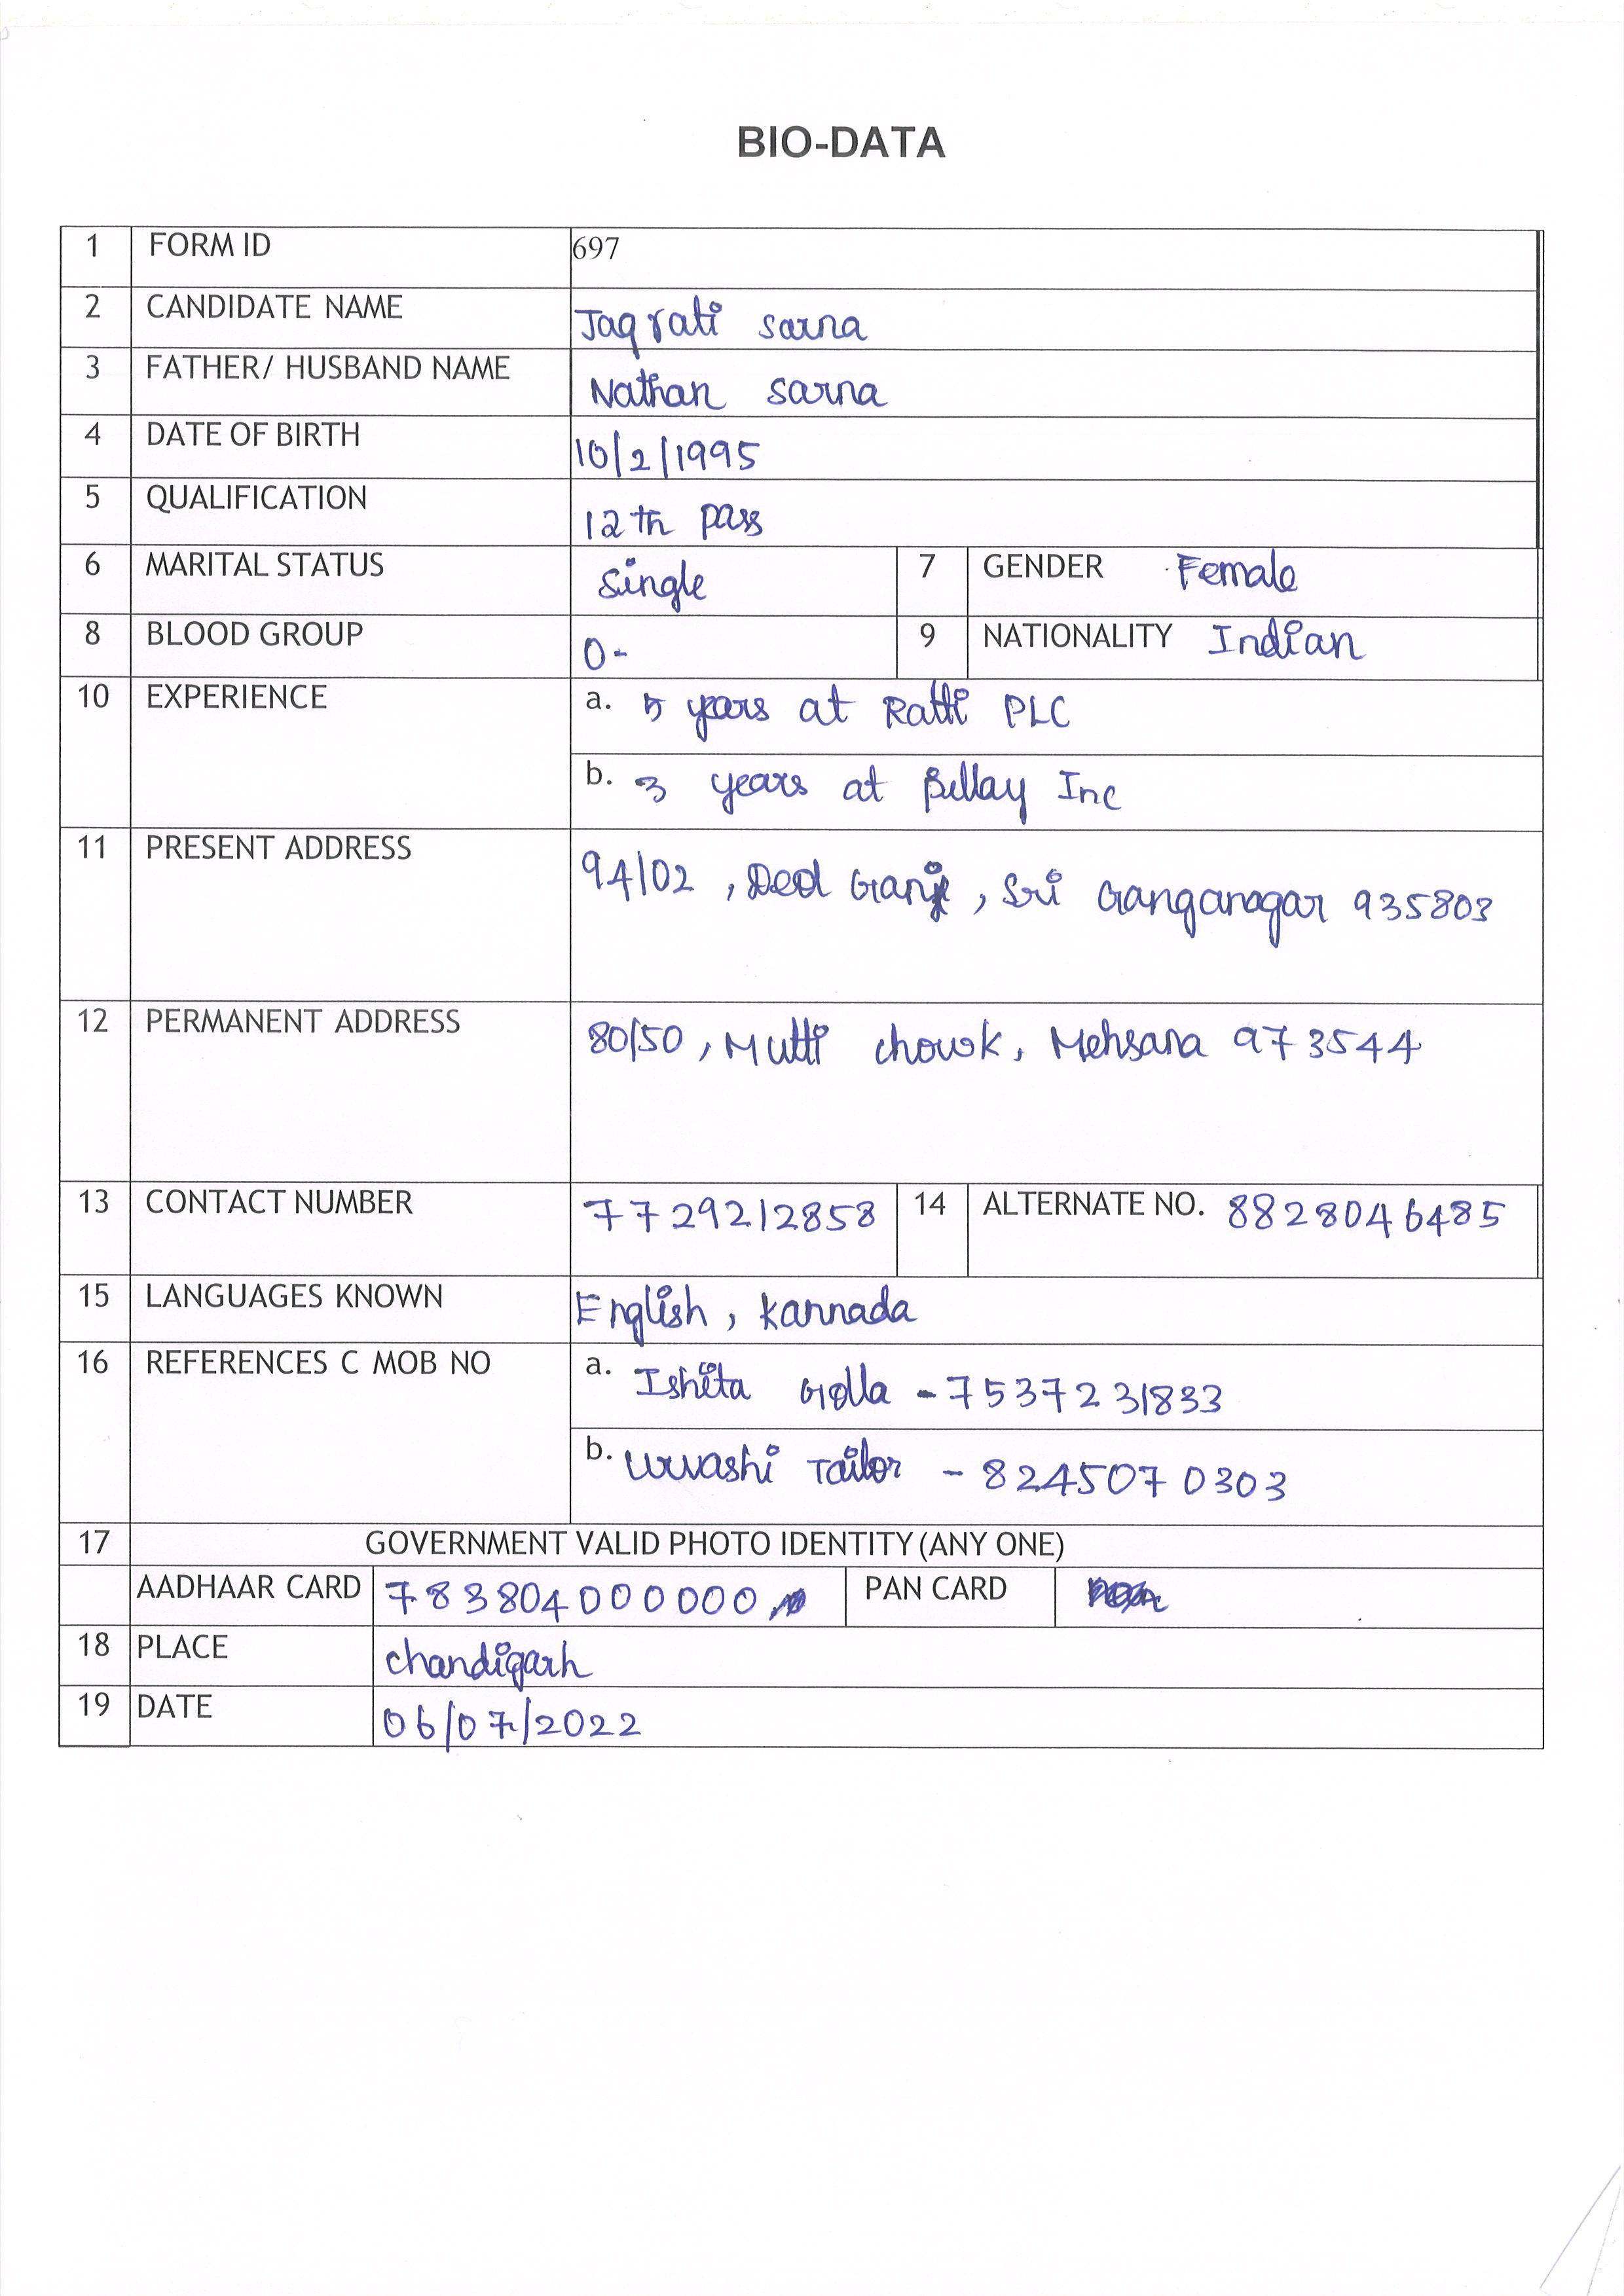 BIO-DATA
1 FORM ID 697
2 CANDIDATE NAME Jagrati Sarna
3 FATHER/ HUSBAND NAME Nathan Sarna
4 DATE OF BIRTH 10/2/1995
5 QUALIFICATION 12th pass
6 MARITAL STATUS Single 7 GENDER Female
8 BLOOD GROUP O- 9 NATIONALITY Indian
10 EXPERIENCE a. 5 years at Ratti PLC
b. 3 years at Billay Inc
11 PRESENT ADDRESS 94/02, Deol Ganj, Sri Ganganagar 935803
12 PERMANENT ADDRESS 80/50, Mutti chowk, Mehsana 973544
13 CONTACT NUMBER 7729212858 14 ALTERNATE NO. 8828046485
15 LANGUAGES KNOWN English, Kannada
16 REFERENCES C MOB NO a. Ishita Golla - 7537231833
b. Urvashi Tailor - 8245070303
17 GOVERNMENT VALID PHOTO IDENTITY (ANY ONE)
AADHAAR CARD 783804000000 PAN CARD
18 PLACE chandigarh
19 DATE 06/07/2022